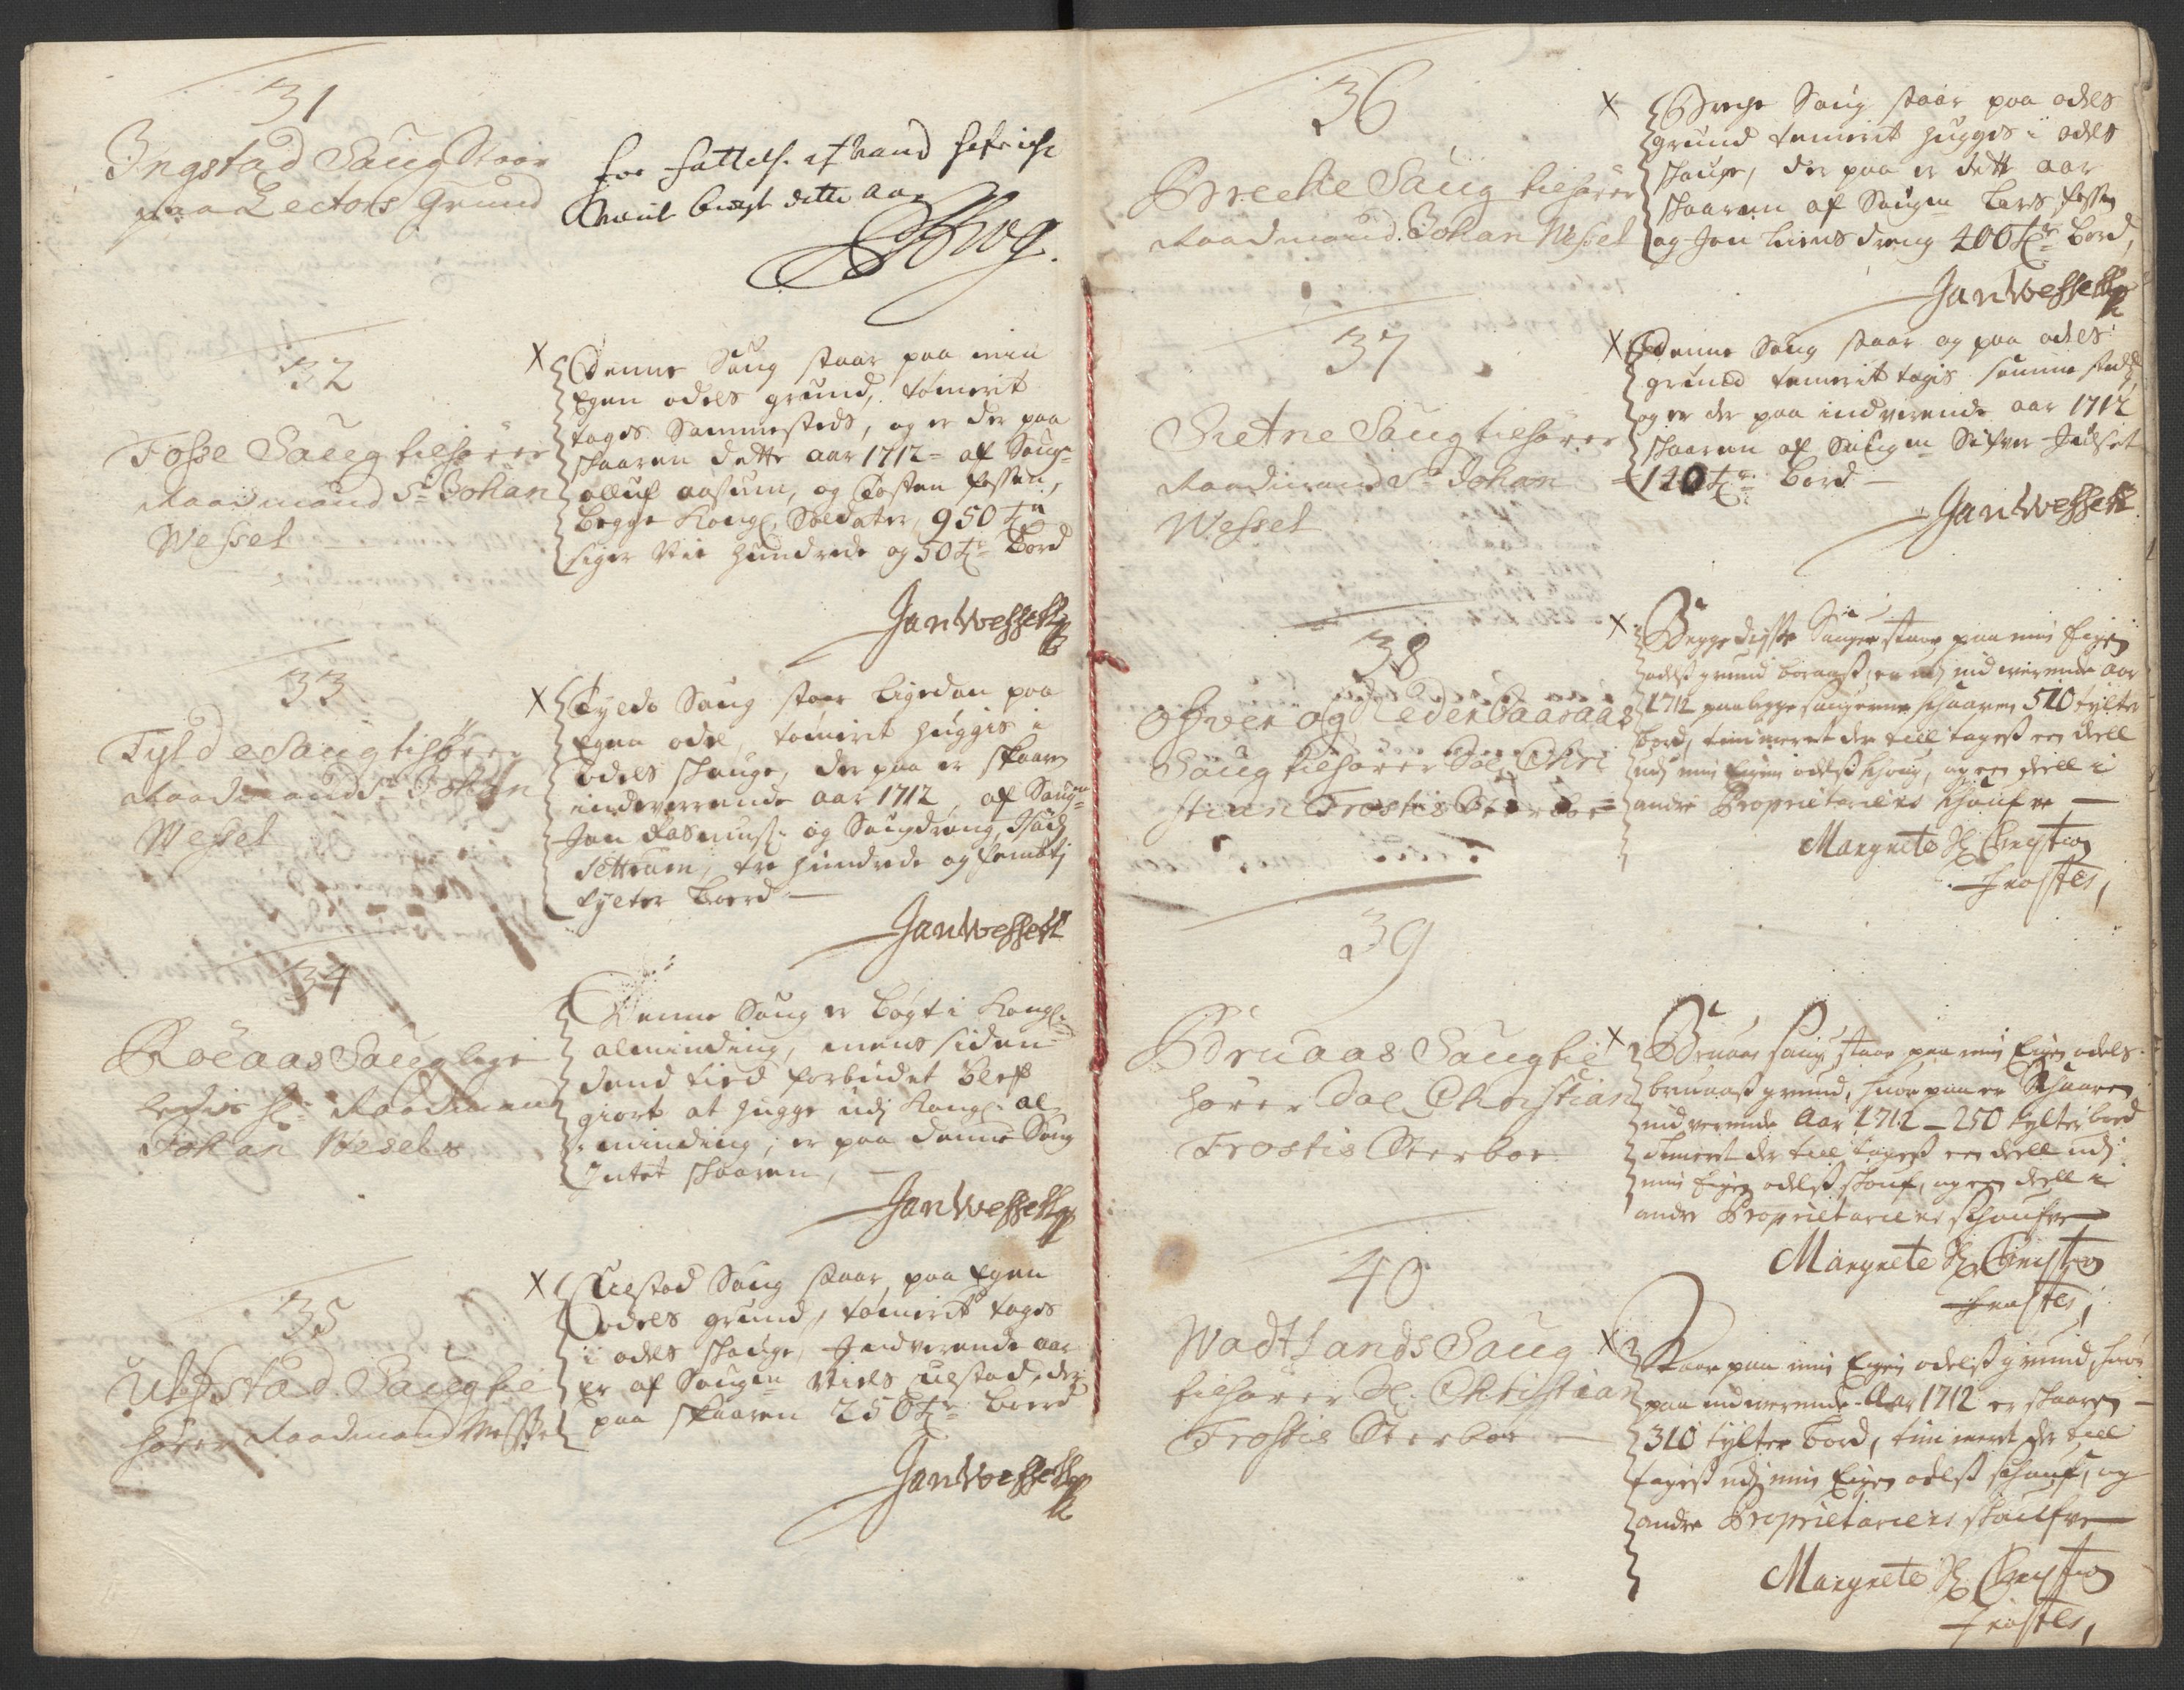 31
Ingstad Saug Staar
paa Lectors Grund
for fattelse af Vand hafr ich
bragt dette aar
32
Fosse Saug tilhører
Raadmand Sr Johan
Wessel
Denne Saug staar paa min
Egen odels grund, tømerit
tages Sammesteds, og er der paa
skaaren dette aar 1712 af Saugm
olluf aasum, og Costen fossen,
begge Kongl. Soldater, 950 tr
siger Nie hundrede og 50 tr Bord
Jan Wessell
33
Fylde Saug tilhører
Raadmand Sr Johan
Wessel
Fylde Saug staar ligedan paa
Egen odel, tømerit huggis i
odels skauge, der paa er skaaren
indeverende aar 1712, af Saugm
Jan Rasmuss. og Saugdreng,
tre hundrede og
tylter Boerd
Jan Wessell
34
Roeaas Saug lige
ledis Hr Raadmand
Johan Wesels
Denne Saug er bøgt i Kongl.
alminding, mens siden
dend tied forbudet blef
giort at hugge udj Kongl. al
minding, er paa denne Saug
Intet skaaren,
Jan Wessell
35
Ulfstad Saug til
hører Raadmand Wessel
Ulstad Saug staar paa Egen
odels grund, tømerit tages
i odels skauge, Indverende aar
er af Saugm Niels ulstad, der
paa skaaren 250 tr boerd
Jan Wessell
36
Brecke Saug tilhører
Raadmand Johan Wessel
Breche Saug staar paa odels
grund temerit hugges i odels
skauge, der paa er dette aar
skaaren af Saugm Lars fossen
og Jon dreng 400 tr bord,
Jan Wessell
37
Sletne Saug tilhører
Raadmand Sr Johan
Wessel
Denne Saug staar og paa odels
grund temerit tagis samme steds
og er der paa indverende aar 1712
skaaren af Saugm Sifver
140 tr bord
Jan Wessell
38
Ofver og Neder Baaraas
Saug tilhører Sal. Chri
stian Frostis Sterboe
Begge disse Sauger staar paa min Eigen
odelss grund boraass, er udj indverende aar
1712 paa begge saugerne skaaren 510 tylter
bord, timmeret der till tagess een deell
udj min Eigen odelss skoug, og een deell i
andre Proprietariers skoufve
Margrete Sl Christian
Frostes,
39
Bruaas Saug til
hører Sal Christian
Frostis Sterboe
Bruaas saug staar paa min Eigen odels
bruaass grund, huor paa er skaaren
indverende Aar 1712 - 250 tylter bord
timeret der till tagess een deell udj
min Eigen odelss skouf, og een deell i
andre Proprietariers skoufve
Margrete Sl Christian
Frostes,
40
Wadtlands Saug
tilhører Sl. Christian
Frostis Sterboe
Staar paa min Eigen odelss grund, huor
paa indverende Aar 1712 er skaaren
310 tylter bord, timmeret der till
tagess udj min Eigen odelss skouf, og
andre Proprietariers skoufve
Margrete Sl Christian
Frostes,